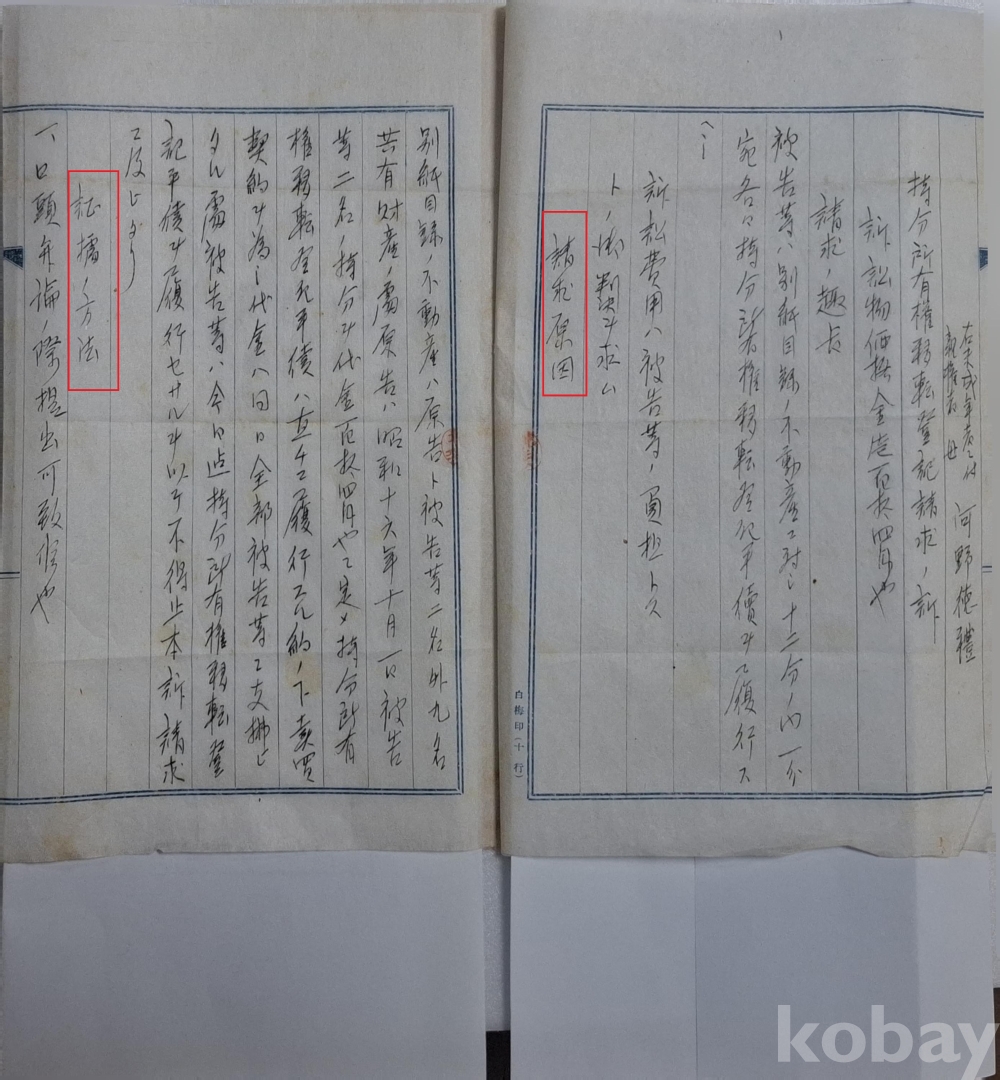 右未成年者ニ付
親権者 母 河野徳禮
持分所有権移転登記請求ノ訴
訴訟物価格金壱百拾四円也
請求ノ趣旨
被告等ハ別紙目録ノ不動産ニ対シ十二分ノ内一分
宛各々持分所有権移転登記手續ヲ履行ス
ヘシ
訴訟費用ハ被告等ノ負担トス
トノ御判決ヲ求ム
請求原因
白梅印(十行)
別紙目録ノ不動産ハ原告ト被告等二名外九名
共有財産ノ處原告ハ昭和十六年十月一日被告
等二名ノ持分ヲ代金百拾四円也ニ定メ持分所有
権移転登記手續ハ直チニ履行スル約ノ下売買
契約ヲ為シ代金ハ同日全部被告等ニ支拂ヒ
タル處被告等ハ今日迠持分所有権移転登
記手續ヲ履行セサルヲ以テ不得止本訴請求
ニ及ヒタリ
証拠ノ方法
一、口頭弁論ノ際提出可致候也
kobay